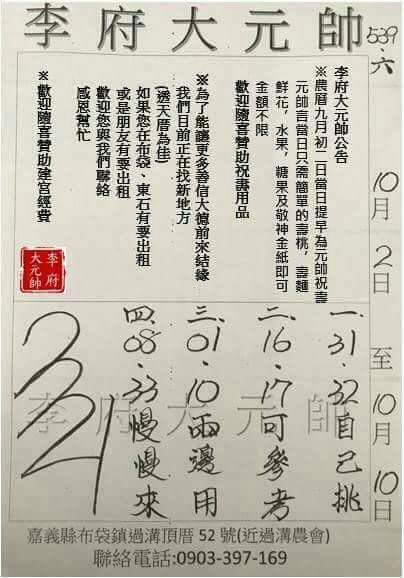 李府大元帥
539.六
李府大元帥公告
※農曆九月初二日當日提早為元帥祝壽
元帥言當日只需簡單的壽桃，壽麵
鮮花，水果，糖果及敬神金紙即可
金額不限
歡迎隨喜贊助祝壽用品
※為了能讓更多善信大德前來結緣
我們目前正在找新地方
(透天厝為佳)
如果您在布袋、東石有要出租
或是朋友有要出租
歡迎您與我們聯絡
感恩幫忙
※歡迎隨喜贊助建宮經費
李府
大元帥
10月2日至10月10日
李府大元帥
一.31.32自己挑
二.16.17可參考
三.01.10兩邊用
四.08.33慢慢來
嘉義縣布袋鎮過溝頂厝 52 號(近過溝農會)
聯絡電話:0903-397-169